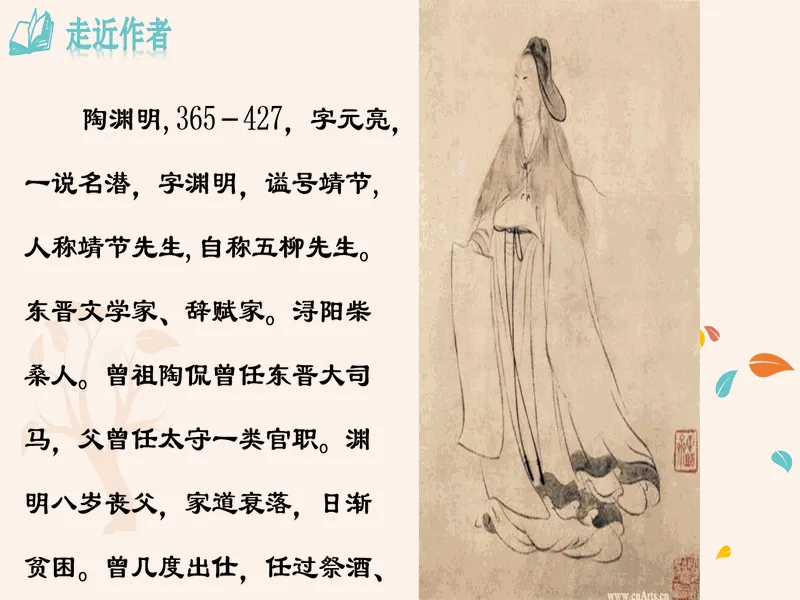 走近作者
陶渊明,365-427，字元亮，
一说名潜，字渊明，谥号靖节，
人称靖节先生,自称五柳先生。
东晋文学家、辞赋家。浔阳柴
桑人。曾祖陶侃曾任东晋大司
马，父曾任太守一类官职。渊
明八岁丧父，家道衰落，日渐
贫困。曾几度出仕，任过祭酒、
www.cnArts.cn